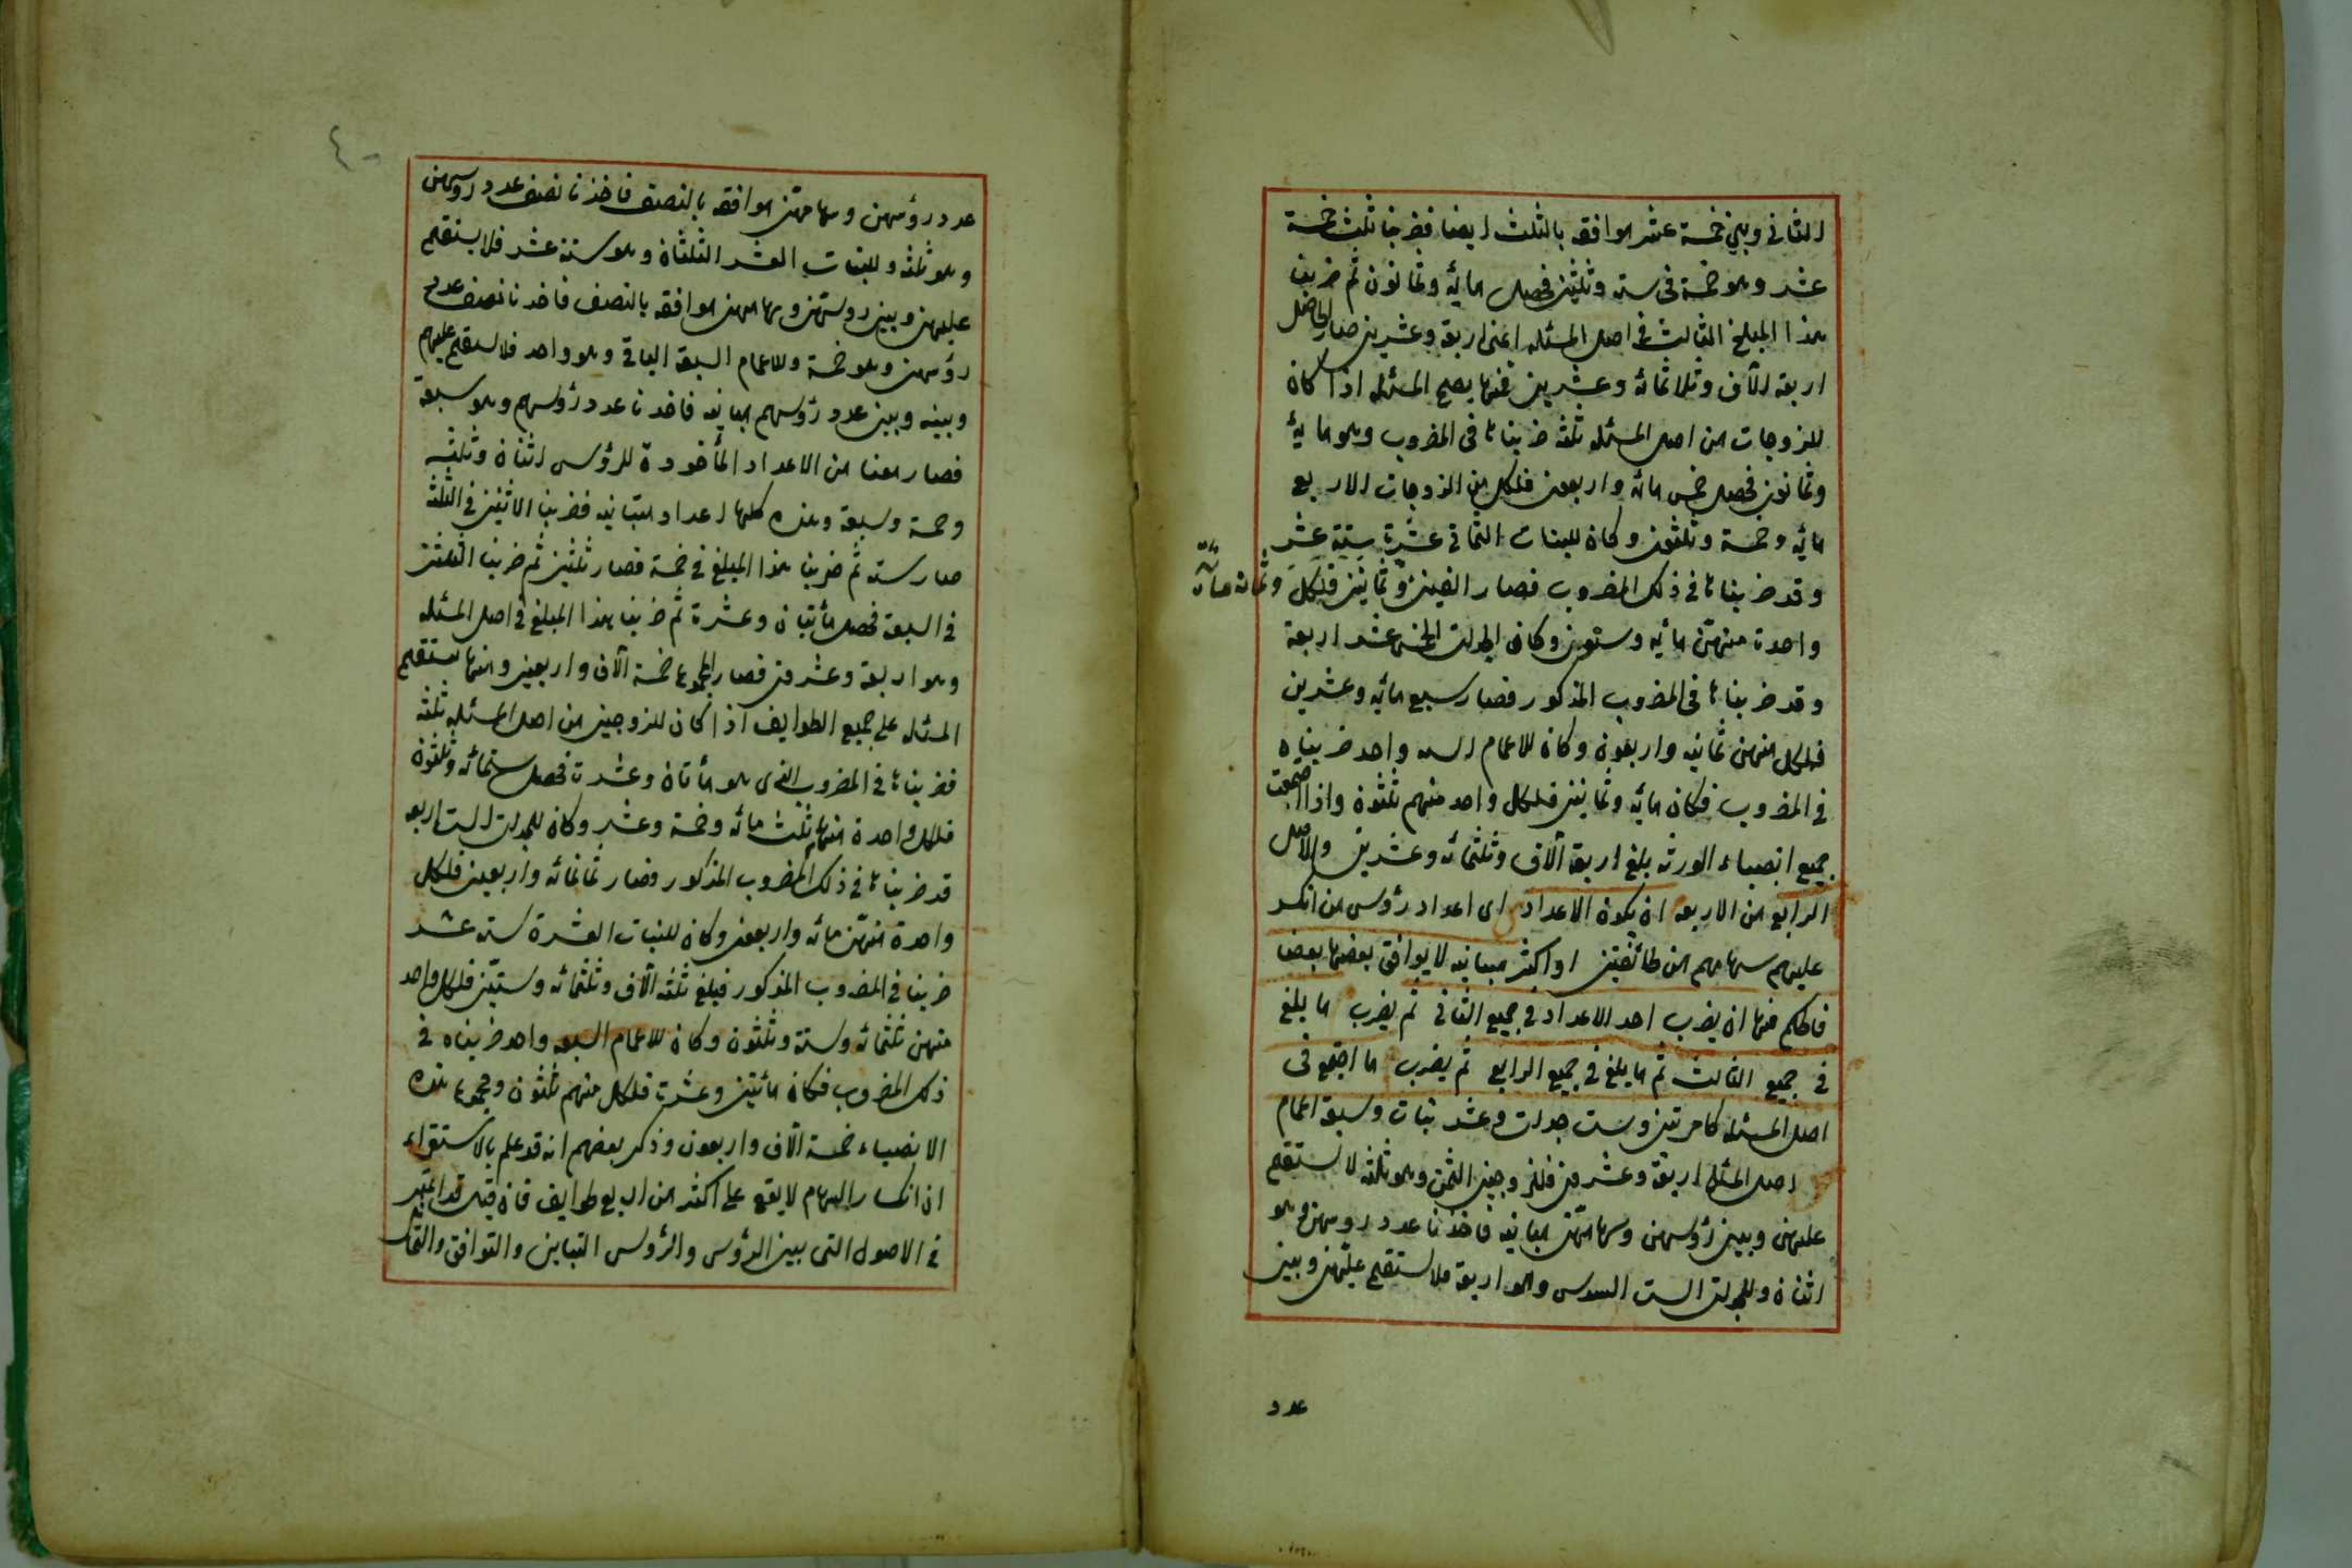 الثانى وبين خمسة عشر موافقه بالثلث ايضا فضربنا ثلث خمسة
عشر وهو خمسة فى سته وثلثين فحصل مايه وثمانون ثم ضربنا
هذا المبلغ الثالث فى اصل المسئله اعنى اربعة وعشرين صار الحاصل
اربعة الآف وثلاثمائه وعشرين فمنها يصح المسئله اذا كان
للزوجات من اصل المسئله ثلثه ضربناها فى المضروب وهو مايه
وثمانون فحصل خمس مائه واربعون فلكل من الزوجات الاربع
مايه وخمسة وثلثون وكان للبنات الثمانى عشرة ستة عشر
وقد ضربناها فى ذلك المضروب فصار الفين وثمانين فلكل
وثمانمائه
واحدة منهن مايه وستون وكان للجدات الخمسه عشر اربعة
وقد ضربناها فى المضروب المذكور فصار سبع مايه وعشرين
فلكل منهن ثمانيه واربعون وكان للاعمام السته واحد ضربناه
فى المضروب فكان مايه وثمانين فلكل واحد منهم ثلثون واذا جمعت
جميع انصباء الورثه بلغ اربعة آلاف وثلثمائه وعشرين والاصل
الرابع من الاربعه ان يكون الاعداد اى اعداد رؤس من انكسر
عليهم سهامهم من طائفتين او اكثر مباينه لا يوافق بعضها بعضا
فالحكم فيها ان يضرب احد الاعداد فى جميع الثانى ثم يضرب ما بلغ
فى جميع الثالث ثم ما يلغ فى جميع الرابع ثم يضرب ما اجتمع فى
اصل المسئله كامرتين وست جدات وعشر بنات وسبعة اعمام
اصل المسئله اربعة وعشرين فللزوجين الثمن وهو ثلثه لا يستقيم
عليهن وبين رؤسهن وسهامهن مباينه فاخذنا عدد روسهن وهو
اثنان وللجدات الست السدس وهو اربعة فلا يستقيم عليهن وبين
عدد
٤٠
عدد رؤسهن وسهامهن موافقه بالنصف فاخذنا نصف عدد روسهن
وهو ثلثه وللبنات العشر الثلثان وهو ستة عشر فلا يستقيم
عليهن وبين روسهن وسهامهن موافقه بالنصف فاخذنا نصف عدد
رؤسهن وهو خمسة وللاعمام السبعة الباقى وهو واحد فلا يستقيم عليهم
وبينه وبين عدد رؤسهم مباينه فاخذنا عدد رؤسهم وهو سبعة
فصار معنا من الاعداد المأخوذة للرؤس اثنان وثلثه
وخمسة وسبعة وهذه كلها اعداد متباينه فضربنا الاثنين فى الثلثه
صار سته ثم ضربنا هذا المبلغ فى خمسة فصار ثلثين ثم ضربنا الثلثين
فى السبعة فحصل مأتيان وعشرة ثم ضربنا هذا المبلغ فى اصل المسئله
وهو اربعة وعشرين فصار المجموع خمسة آلاف واربعين ومنها يستقيم
المسئله على جميع الطوايف اذا كان للزوجين من اصل المسئله ثلثه
فضربناها فى المضروب الذى هو مأتان وعشرة فحصل ستمائه وثلثون
فلكل واحدة منها ثلث مائه وخمسة وعشر وكان للجدات الست اربعه
قد ضربناها فى ذلك المضروب المذكور فصار ثمانمائه واربعين فلكل
واحدة منهن مائه واربعون وكان للبنات العشرة سته عشر
ضربنا فى المضروب المذكور فبلغ ثلثه آلاف وثلثمائه وستين فلكل واحد
منهن ثلثمائه وستة وثلثون وكان للاعمام السبعه واحد ضربناه فى
ذلك المضروب فكان مائتين وعشرة فلكل منهم ثلثون ومجموع هذه
الانصباء خمسة آلاف واربعون وذكر بعضهم انه قد علم بالاستقراء
ان انكسار السهام لا يقع على اكثر من اربع طوايف فان قيل قد اعتبر
فى الاصول التى بين الرؤس والرؤس التباين والتوافق والتماثل